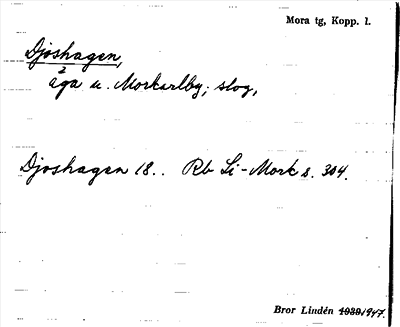 Mora tg, Kopp. l.
Djoshagen,
äga u. Morkarlby; slog,
Djoshagen 18.. Rb Li-Mork s. 304.
Bror Lindén 1939 1947.